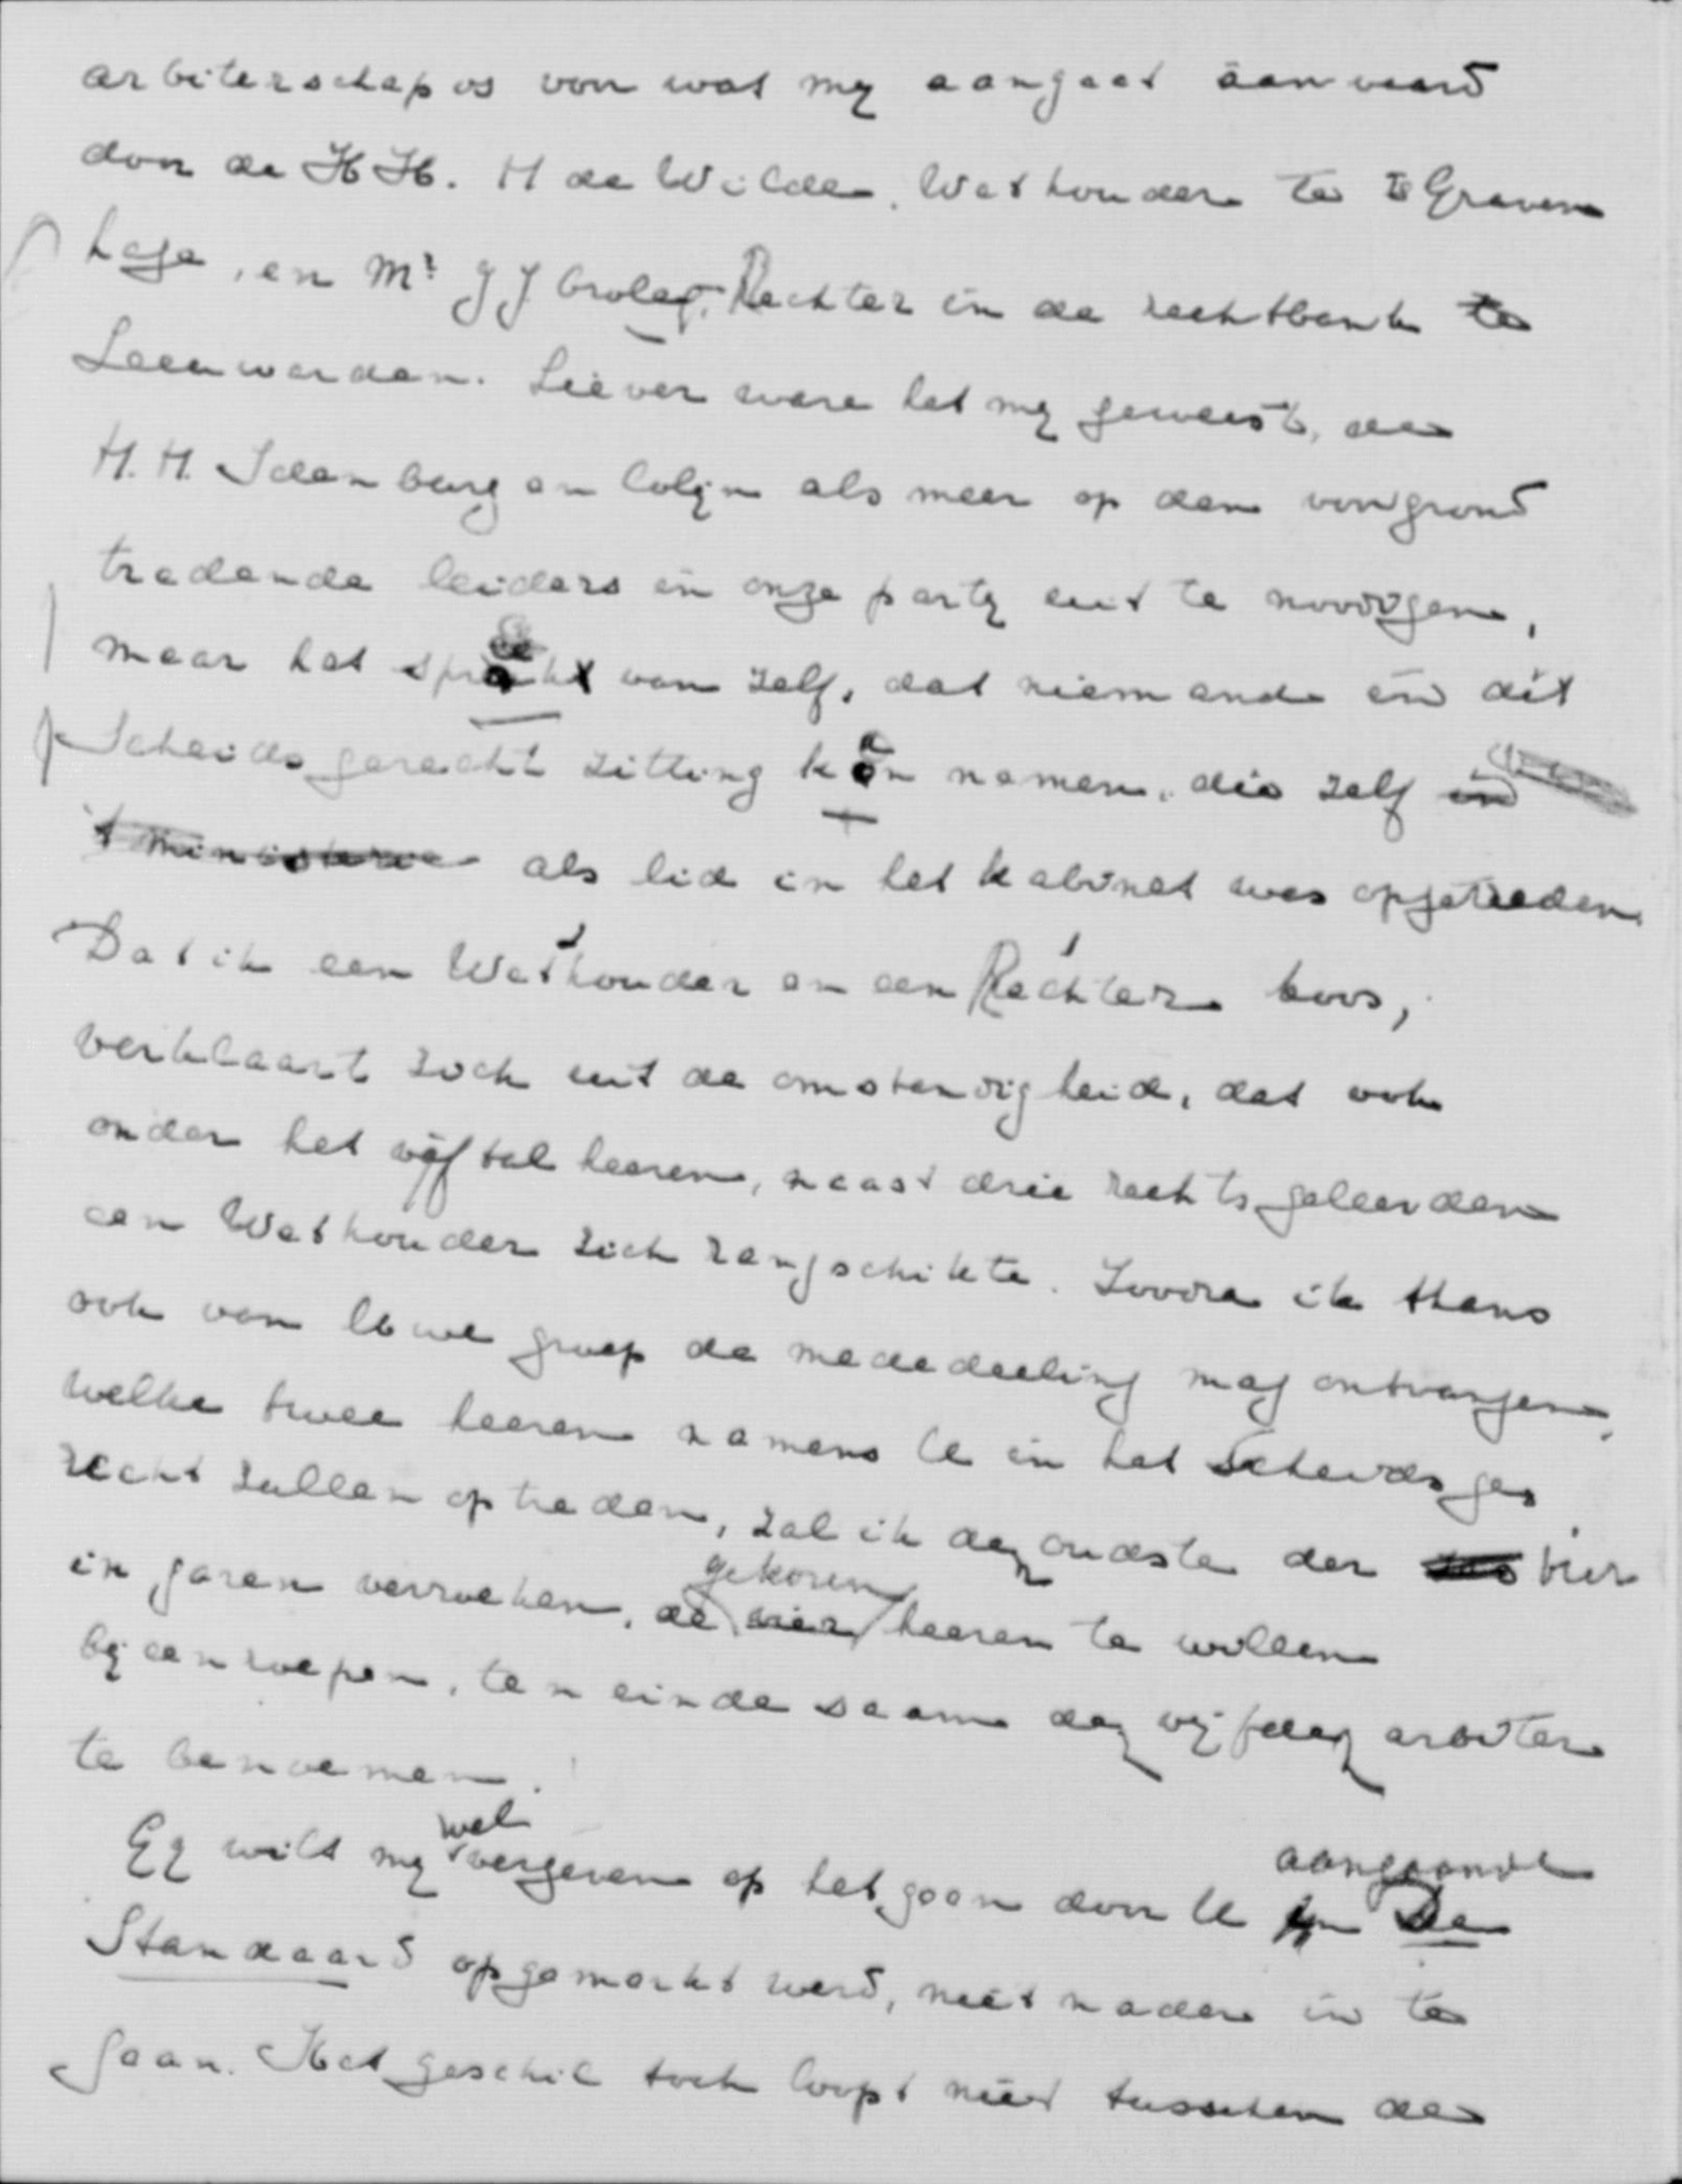 arbiterschap is voor wat mij aangaat aanvaard
door de HH. H de Wilde. Wethouder te 's Graven
hage, en Mr. J J Croles, Rechter in de rechtbank te
Leeuwarden. Liever ware het mij geweest, de
H.H. Idenburg en Colijn als meer op den voorgrond
tredende leiders in onze partij uit te noodigen,
maar het spreekt van zelf, dat niemand in dit
Scheidsgerecht zitting kan nemen, die zelf in
't ministerie als lid in het kabinet was opgetreden.
Dat ik een Wethouder en een Rechter koos,
verklaart zich uit de omstandigheid, dat ook
onder het vijftal heeren, naast drie rechtsgeleerden
een Wethouder zich rangschikte. Zoodra ik thans
ook van Uwe groep de mededeeling mag ontvangen,
welke twee heeren namens U in het Scheidsge
recht zullen optreden, zal ik den oudste der vier
in jaren verzoeken, de vier gekoren heeren te willen
bijeenroepen, ten einde saam den vijfden arbiter
te benoemen.
Gij wilt mij wel vergeven op hetgeen door U in aangaande De
Standaard opgemerkt werd, niet nader in te
gaan. Het geschil toch loopt niet tusschen de